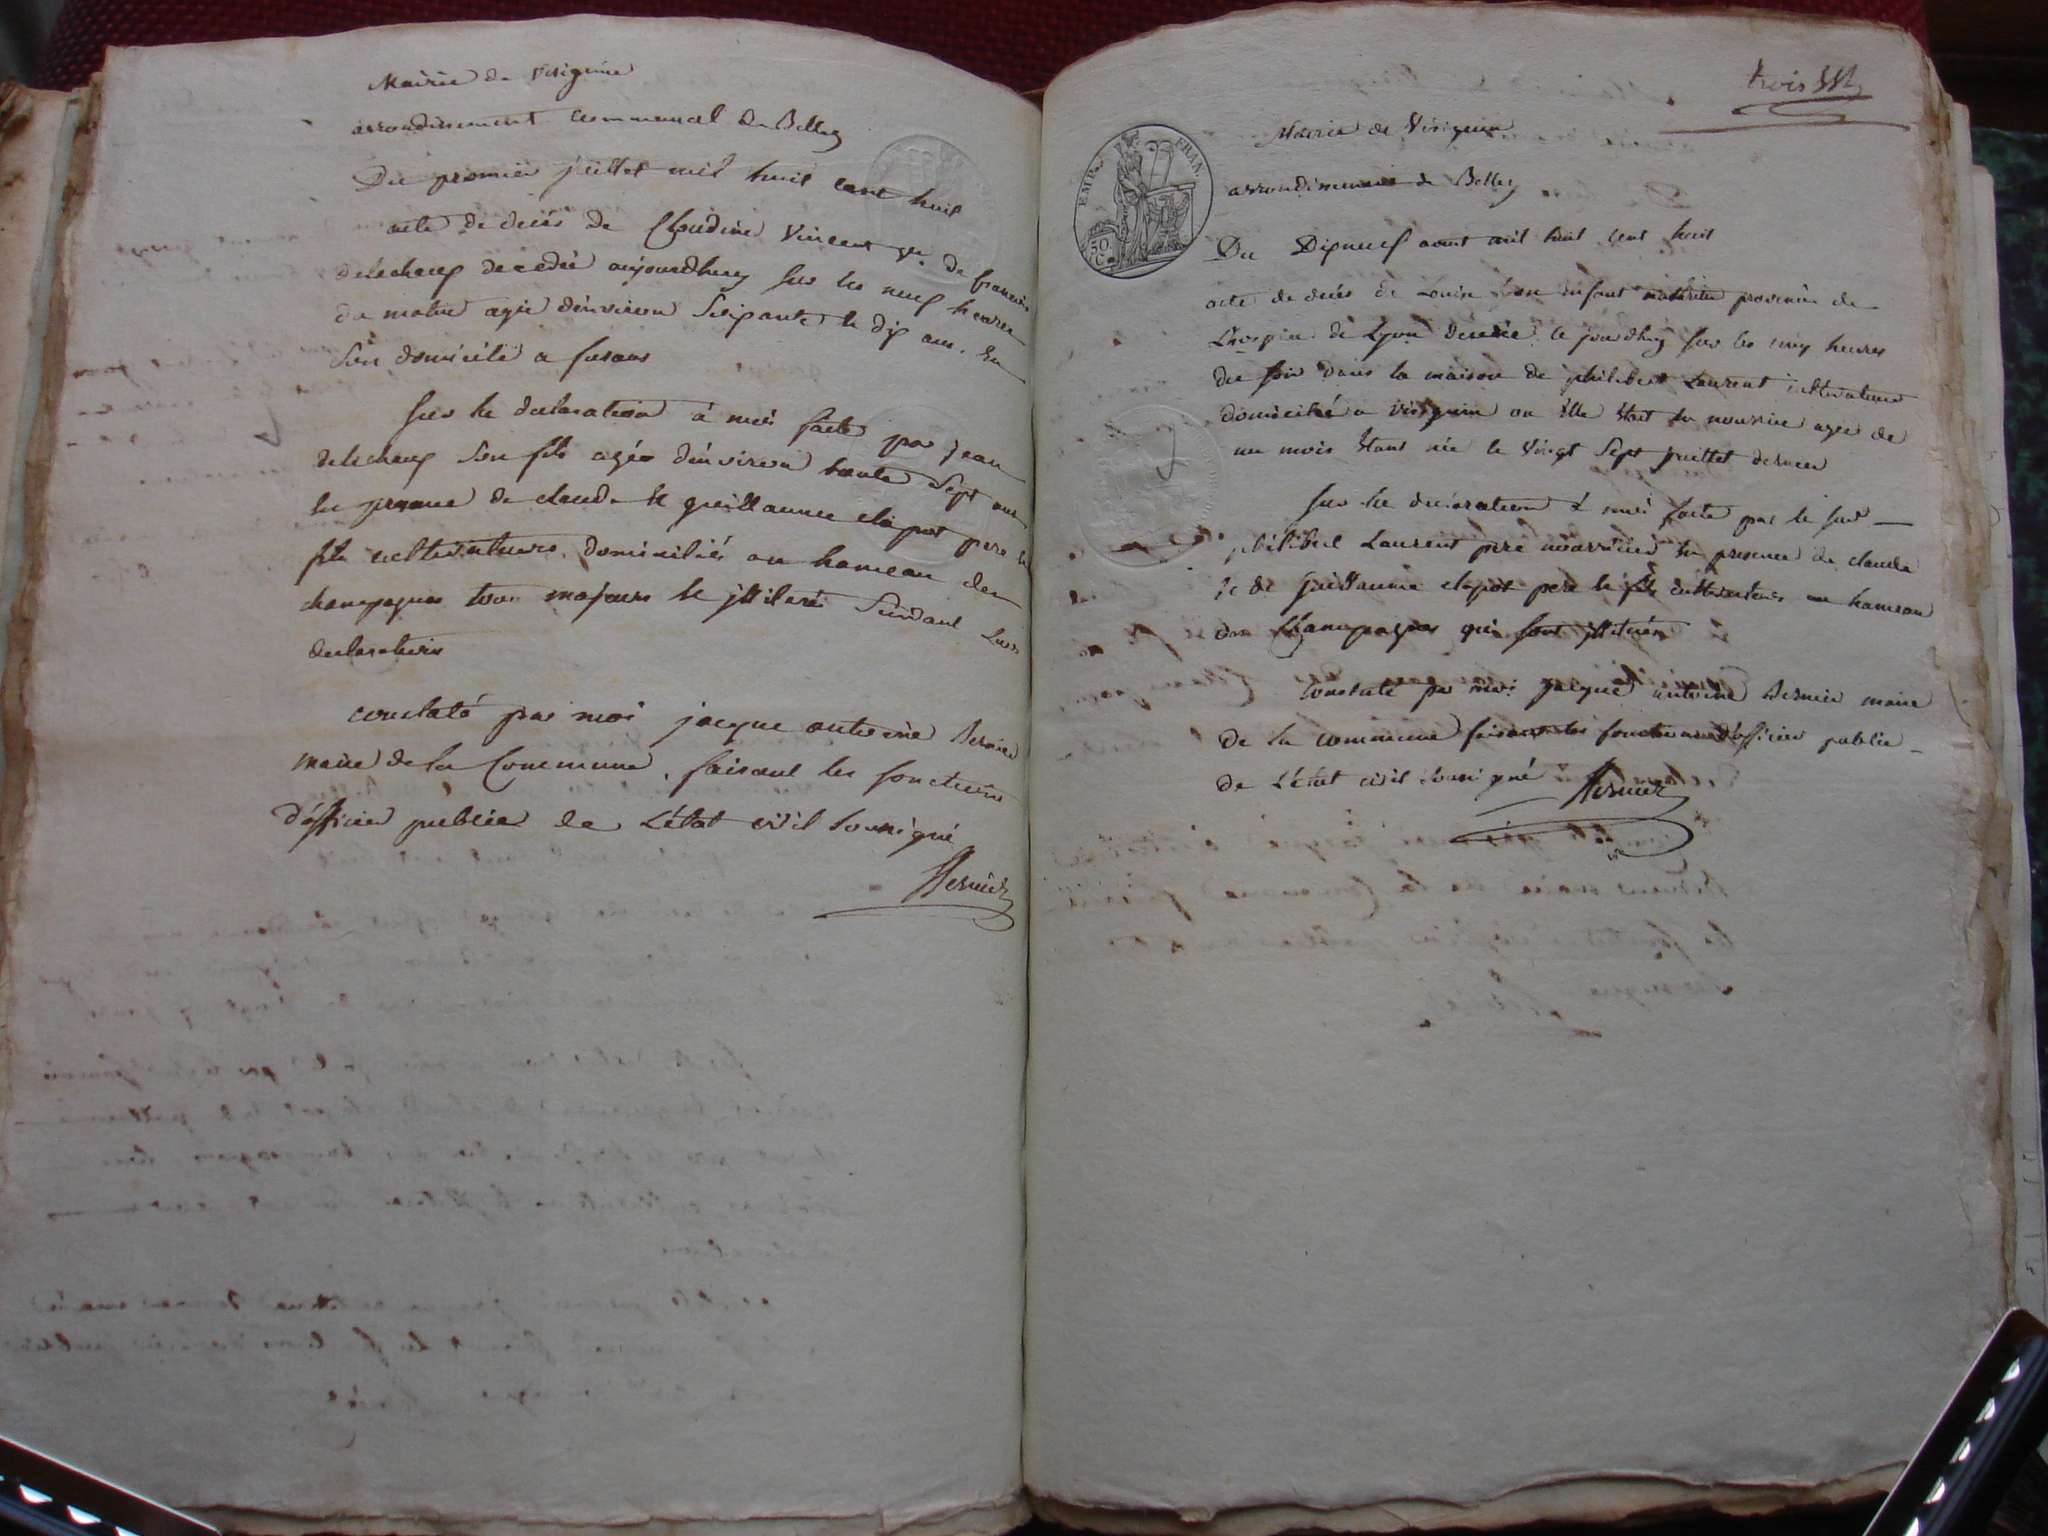 Mairie de Virignin
arrondissement communal de Belley
Du premier juillet mil huit cent huit
acte de decés de Claudine Vincent ve. de francois
delechamp decedée aujourdhuy sur les neuf heures
du matin agée denviron Soixante & dix ans. En
Son domicile a
Sur la declaration á moi faite par jean
delechamp Son fils agée denviron trente Sept ans
En presance de claude & guillaume clapot pere &
fils cultivateurs, domiciliés au hameau des
champagnes tous majeurs & illiterés Suivant Leurs
declarations
constaté par moi jacque antoine Bernier
maire de la Commune, faisant les fonctions
d'officier public de L'état civil Soussigné
Bernier
trois
Mairie de Virignin
arrondissement de Belley
EMP. FRAN.
50 C.
Du Dixneuf aout mil huit cent huit
acte de decés de Louise enfant naturelle provenue de
L'hospice de Lyon decedée ce jourdhuy sur les cinq heures
du soir dans la maison de philibert Laurent cultivateur
domicilié a virignin ou Elle étoit En nourrice agée de
un mois étant née le vingt Sept juillet dernier
Sur la declaration á moi faite par le sus
philibert Laurent pere nourricier En presence de claude
& de guillaume clapot pere & fils cultivateurs au hameau
des Champagnes qui sont illiterés
Constaté par moi jacque antoine Bernier maire
de la commune faisant les fonctions d'officier public
de L'état civil Soussigné Bernier